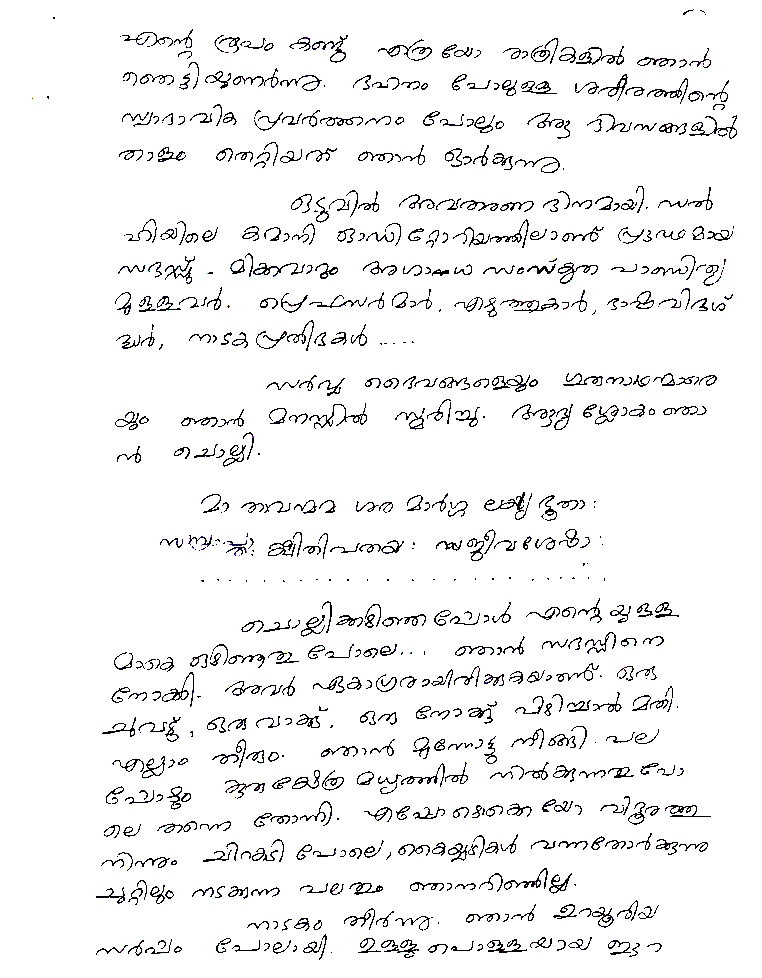 എന്റെ രൂപം കണ്ട് എത്രയോ രാത്രികളിൽ ഞാൻ
ഞെട്ടിയുണർന്നു. ദഹനം പോലുള്ള ശരീരത്തിന്റെ
സ്വാഭാവിക പ്രവർത്തനം പോലും ആ ദിവസങ്ങളിൽ
താളം തെറ്റിയത് ഞാൻ ഓർക്കുന്നു.
ഒടുവിൽ അവതരണ ദിനമായി. ഡൽ
ഹിയിലെ കമാനി ഓഡിറ്റോറിയത്തിലാണ് പ്രൗഢമായ
സദസ്സ് - മിക്കവാറും അഗാധ സംസ്കൃത പാണ്ഡിത്യ
മുള്ളവർ. പ്രൊഫസർമാർ, എഴുത്തുകാർ, ഭാഷാവിദഗ്
ദ്ധർ, നാടക പ്രതിഭകൾ .....
സർവ്വ ദൈവങ്ങളെയും ഗുരുനാഥന്മാരെ
യും ഞാൻ മനസ്സിൽ സ്മരിച്ചു. ആദ്യ ശ്ലോകം ഞാ
ൻ ചൊല്ലി.
മാ തവന്മമ ശര മാർഗ്ഗ ലക്ഷ്യ ഭൂതാ:
സമ്പ്രാപ്താ: ക്ഷിതിപതയ: സജീവശേഷാ:
. . . . . . . . . . . . . . . . . . . . . .
ചൊല്ലിക്കഴിഞ്ഞപ്പോൾ എന്റെയുള്ള
മാകെ ഒഴിഞ്ഞതു പോലെ... ഞാൻ സദസ്സിനെ
നോക്കി. അവർ ഏകാഗ്രരായിരിക്കുകയാണ്. ഒരു
ചുവട്, ഒരു വാക്ക്, ഒരു നോക്ക് പിഴച്ചാൽ മതി.
എല്ലാം തീരും. ഞാൻ മുന്നോട്ടു നീങ്ങി. പല
പ്പോഴും കുരുക്ഷേത്ര മധ്യത്തിൽ നിൽക്കുന്നതു പോ
ലെ തന്നെ തോന്നി. എപ്പോഴൊക്കെയോ വിദൂരത്തു
നിന്നും ചിറകടി പോലെ, കൈയ്യടികൾ വന്നതോർക്കുന്നു
ചുറ്റിലും നടക്കുന്ന പലതും ഞാനറിഞ്ഞില്ല.
നാടകം തീർന്നു. ഞാൻ ഉറയൂരിയ
സർപ്പം പോലായി. ഉള്ളു പൊള്ളയായ ഈറ